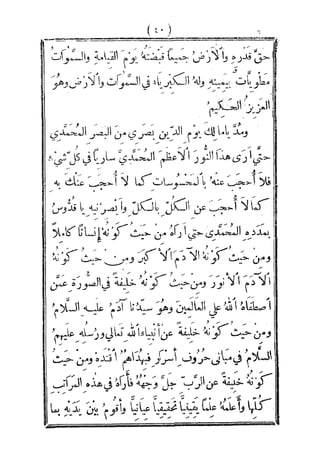 ( ٤٠ )
حَقَّ قَدْرِهِ وَالْأَرْضُ جَمِيعًا قَبْضَتُهُ يَوْمَ الْقِيَامَةِ وَالسَّمَوَاتُ
مَطْوِيَّاتٌ بِيَمِينِهِ وَلَهُ الْكِبْرِيَاءُ فِي السَّمَوَاتِ وَالْأَرْضِ وَهُوَ
الْعَزِيزُ الْحَكِيمُ
وَمُدَّ يَامَالِكَ يَوْمِ الدِّينِ بَصَرِي مِنَ الْبَصَرِ الْمُحَمَّدِي
حَتَّى أَرَى هَذَا النُّورَ الْأَعْظَمَ الْمُحَمَّدِيَّ سَارِيًا فِي كُلِّ شَيْءٍ
فَلَا أُحْجَبَ عَنْهُ بِالْمَحْسُوسَاتِ كَمَا لَا أُحْجَبَ عَنْكَ بِهِ
كَمَا لَا أُحْجَبَ عَنِ الْكُلِّ بِالْكُلِّ وَانْصُرْنِيهِ يَا قُدُّوسُ
بِمَدَدِهِ الْمُحَمَّدِي حَتَّى أَرَاهُ مِنْ حَيْثُ كَوْنُهُ إِنْسَانًا كَامِلًا
وَمِنْ حَيْثُ كَوْنُهُ الْآدَمَ الْأَكْبَرَ وَمِنْ حَيْثُ كَوْنُهُ
الْآدَمَ الْأَنْوَرَ وَمِنْ حَيْثُ كَوْنُهُ خَلِيفَةً فِي الصُّورَةِ عَمَّنِ
اصْطَفَاهُ اللهُ عَلَى الْعَالَمِينَ وَهُوَ سَيِّدُنَا آدَمُ عَلَيْهِ السَّلَامُ
وَمِنْ حَيْثُ كَوْنُهُ خَلِيفَةً عَنْ أَنْبِيَاءِ اللهِ تَعَالَى وَرُسُلِهِ عَلَيْهِمُ
السَّلَامُ فِي مَبَانِي حُرُوفِ أَسْرَارِ فَبِهُدَاهُمُ اقْتَدِهْ وَمِنْ حَيْثُ
كَوْنُهُ خَلِيفَةً عَنِ الرَّبِّ جَلَّ وَجْهُهُ فَأَرَاهُ فِي هَذِهِ الْمَرَاتِبِ
كُلِّهَا وَأَعْلَمُهُ عِلْمًا يَقِينِيًّا تَحْقِيقِيًّا عِيَانِيًّا وَأَقُومُ بَيْنَ يَدَيْهِ بِمَا